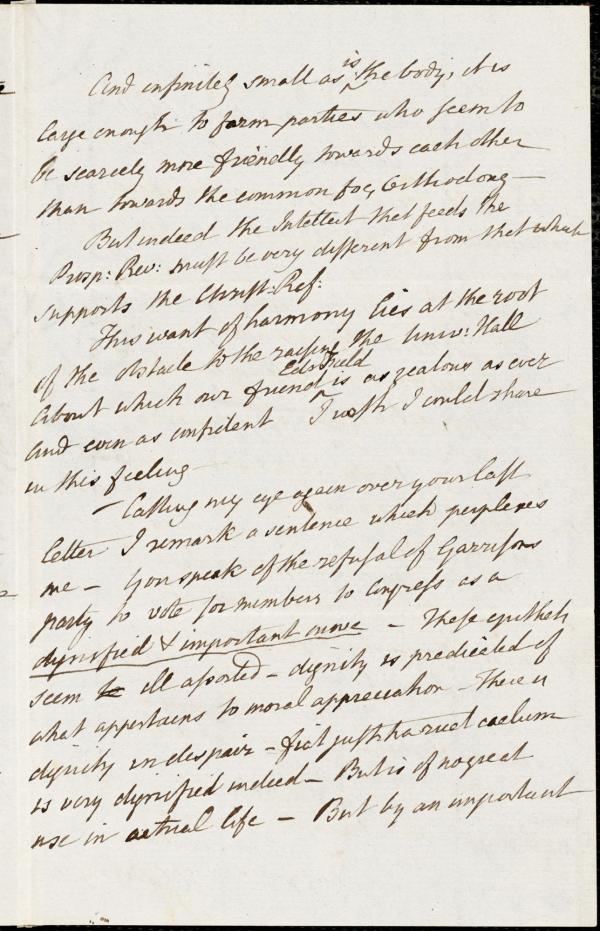 And infinitely small as is the body, it is
large enough to form parties who seem to
be scarcely more friendly towards each other
than towards the common foe, Orthodoxy —
But indeed the Intellect that feeds the
Prosp: Rev: must be very different from that which
supports the Christ: Ref:
This want of harmony lies at the root
of the obstacle to the raising the Univ: Hall
about which our friend Edn Field is as zealous as ever
and even as confident I wish I could share
in this feeling —
— Casting my eye again over your last
letter I remark a sentence which perplexes
me — You speak of the refusal of Garrisons
party to vote for members to Congress as a
dignified & important move — These epithets
seem ill assorted — dignity is predicated of
what appertains to moral appreciation — There is
dignity in despair — fiat justitia ruat coelum
is very dignified indeed — But is of no great
use in actual life — But by an important